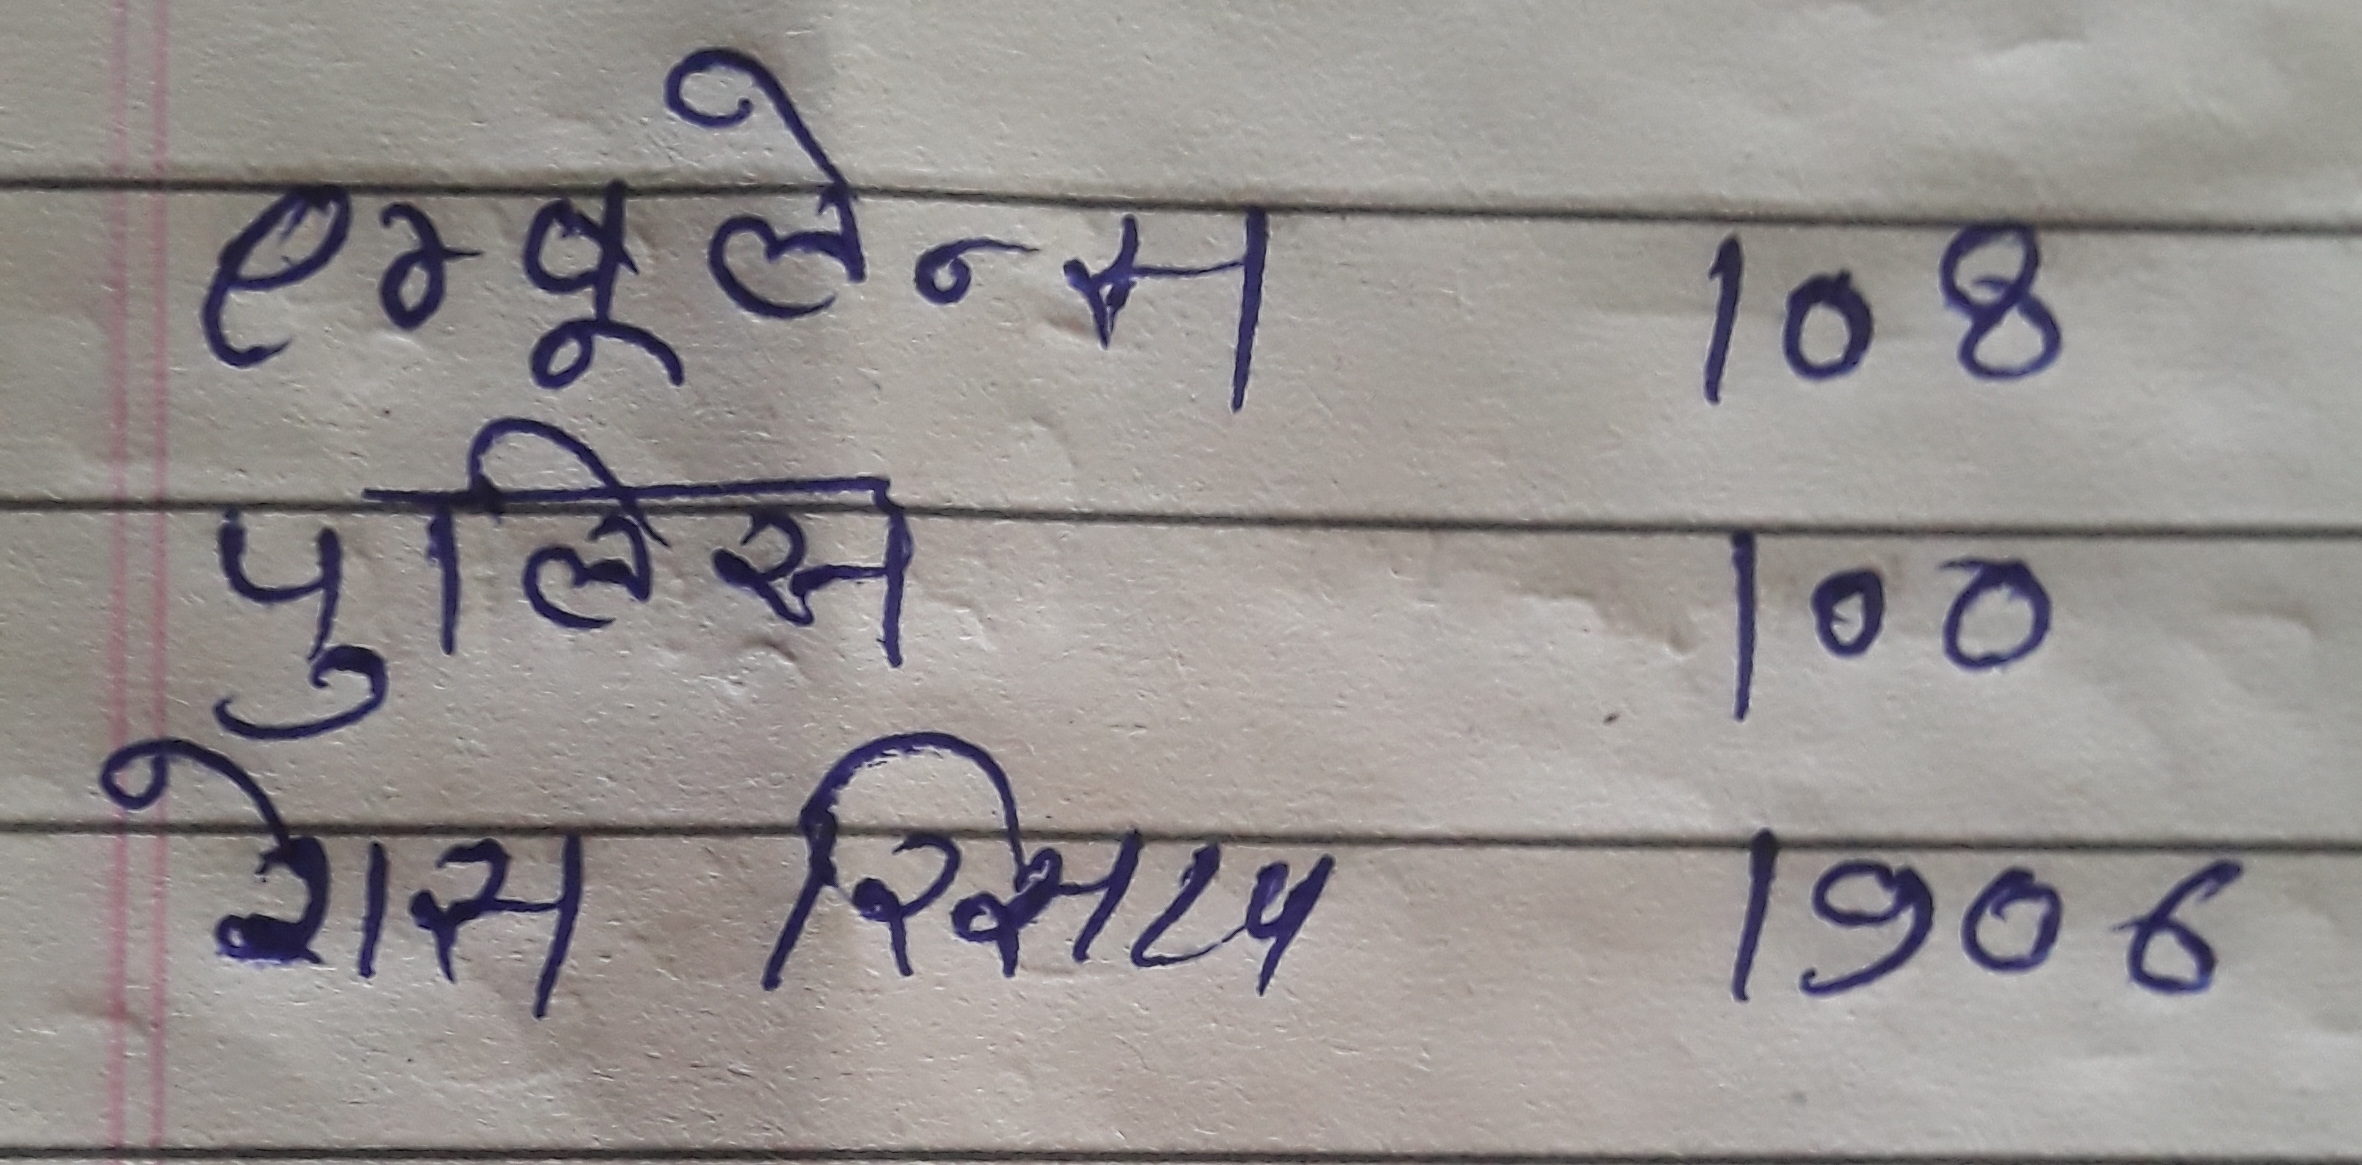 एम्बूलेन्स 108
पुलिस 100
गेस 1906